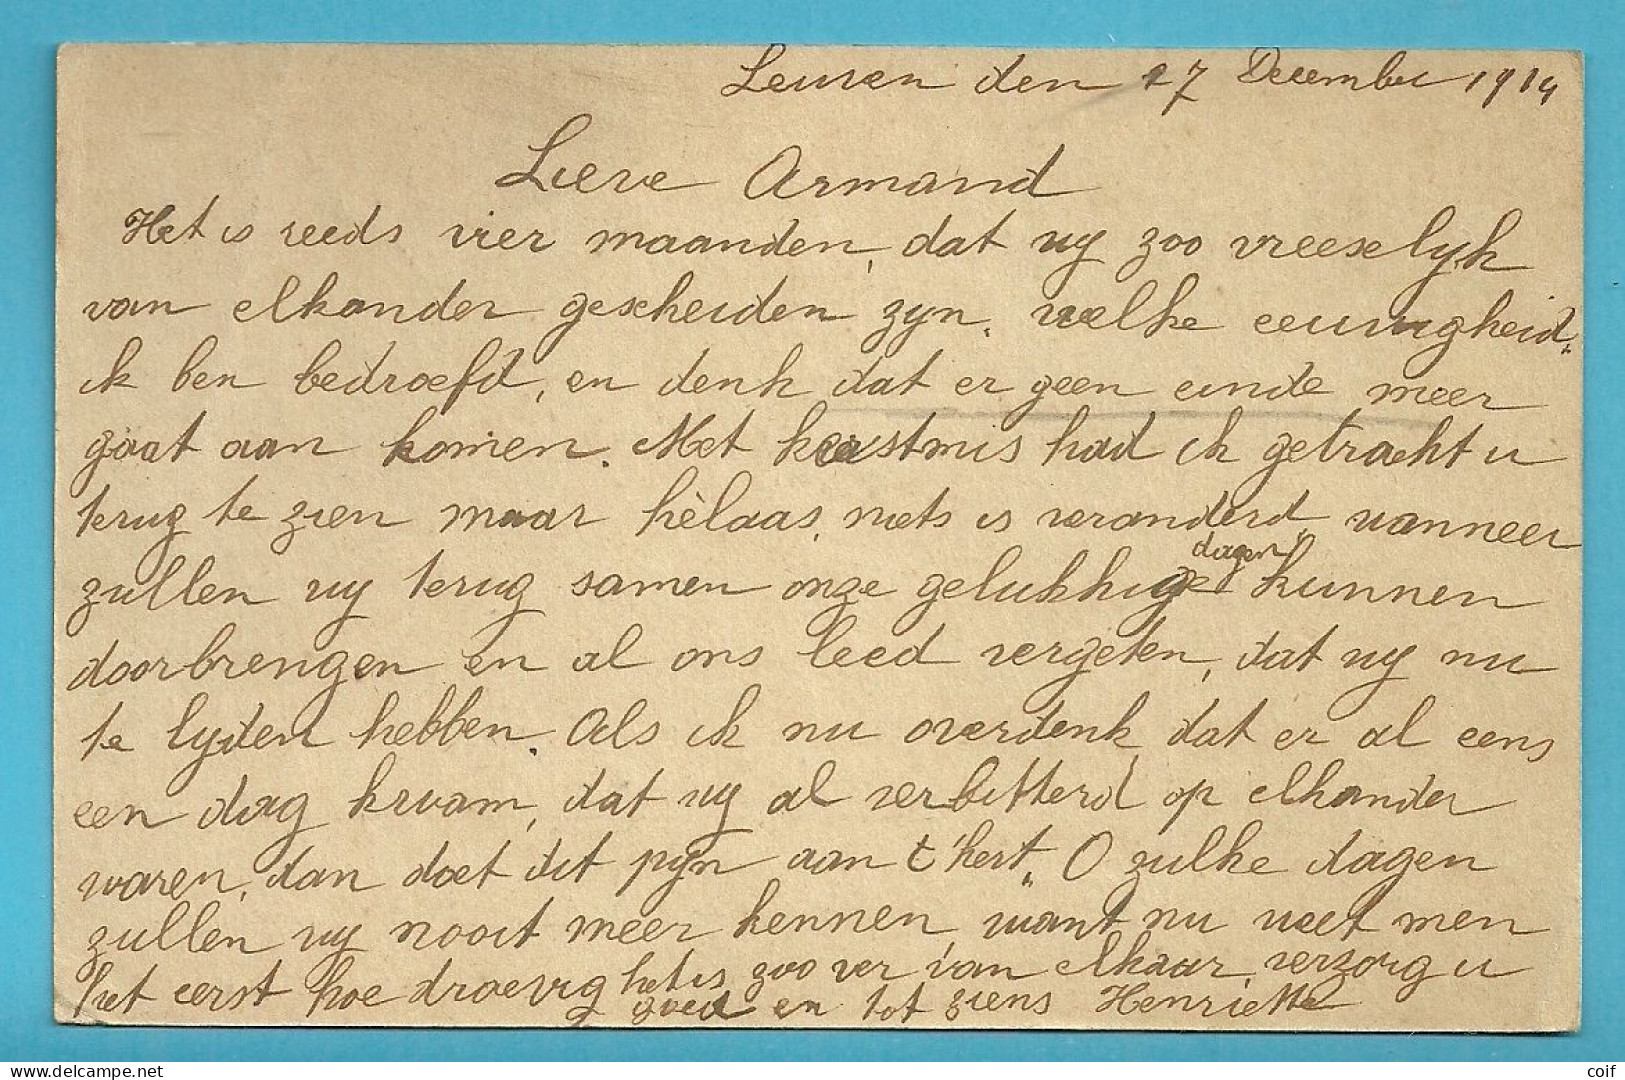 Leuven den 27 December 1914
Lieve Armand
Het is reeds vier maanden, dat wy zoo vreeselyk
van elkander gescheiden zyn. welke eeuwigheid.
ik ben bedroefd, en denk dat er geen einde meer
gaat aan komen. Met kerstmis had ik getracht u
terug te zien maar hèlaas, niets is veranderd, wanneer
dagen
zullen wy terug samen onze gelukkige kunnen
doorbrengen en al ons leed vergeten, dat wy nu
te lyden hebben. Als ik nu overdenk dat er al eens
een dag kwam, dat wy al verbitterd op elkander
waren, dan doet dit pyn aan t'hert. O zulke dagen
zullen wy nooit meer kennen, want nu weet men
het eerst hoe droevig het is zoo ver van elkaar, verzorg u
goed en tot ziens Henriette
coif